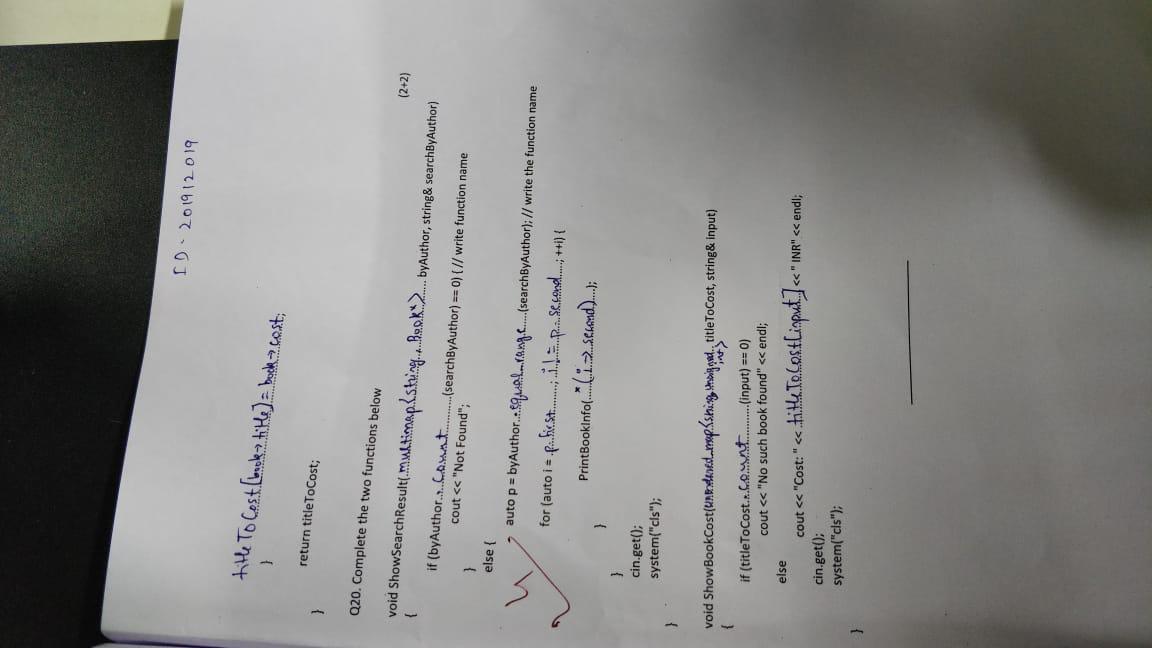 ID - 201912019
titleToCost[book→title]=book→cost;
}
return titleToCost;
}
Q20. Complete the two functions below
(2+2)
void ShowSearchResult(.multimap<string, Book*>..... byAuthor, string& searchByAuthor)
{
if (byAuthor...count............(searchByAuthor) == 0) { // write function name
cout << "Not Found";
}
else {
auto p = byAuthor..equal_range.....(searchByAuthor); // write the function name
for (auto i = .p.first........; .i != p.second....; ++i) {
4
PrintBookInfo(...*(i→second)....);
}
}
cin.get();
system("cls");
}
void ShowBookCost(unordered_map<string, unsigned.. titleToCost, string& input)
int>
{
if (titleToCost..count...........(input) == 0)
cout << "No such book found" << endl;
else
cout << "Cost: " << titleToCost[input] << " INR" << endl;
cin.get();
system("cls");
}